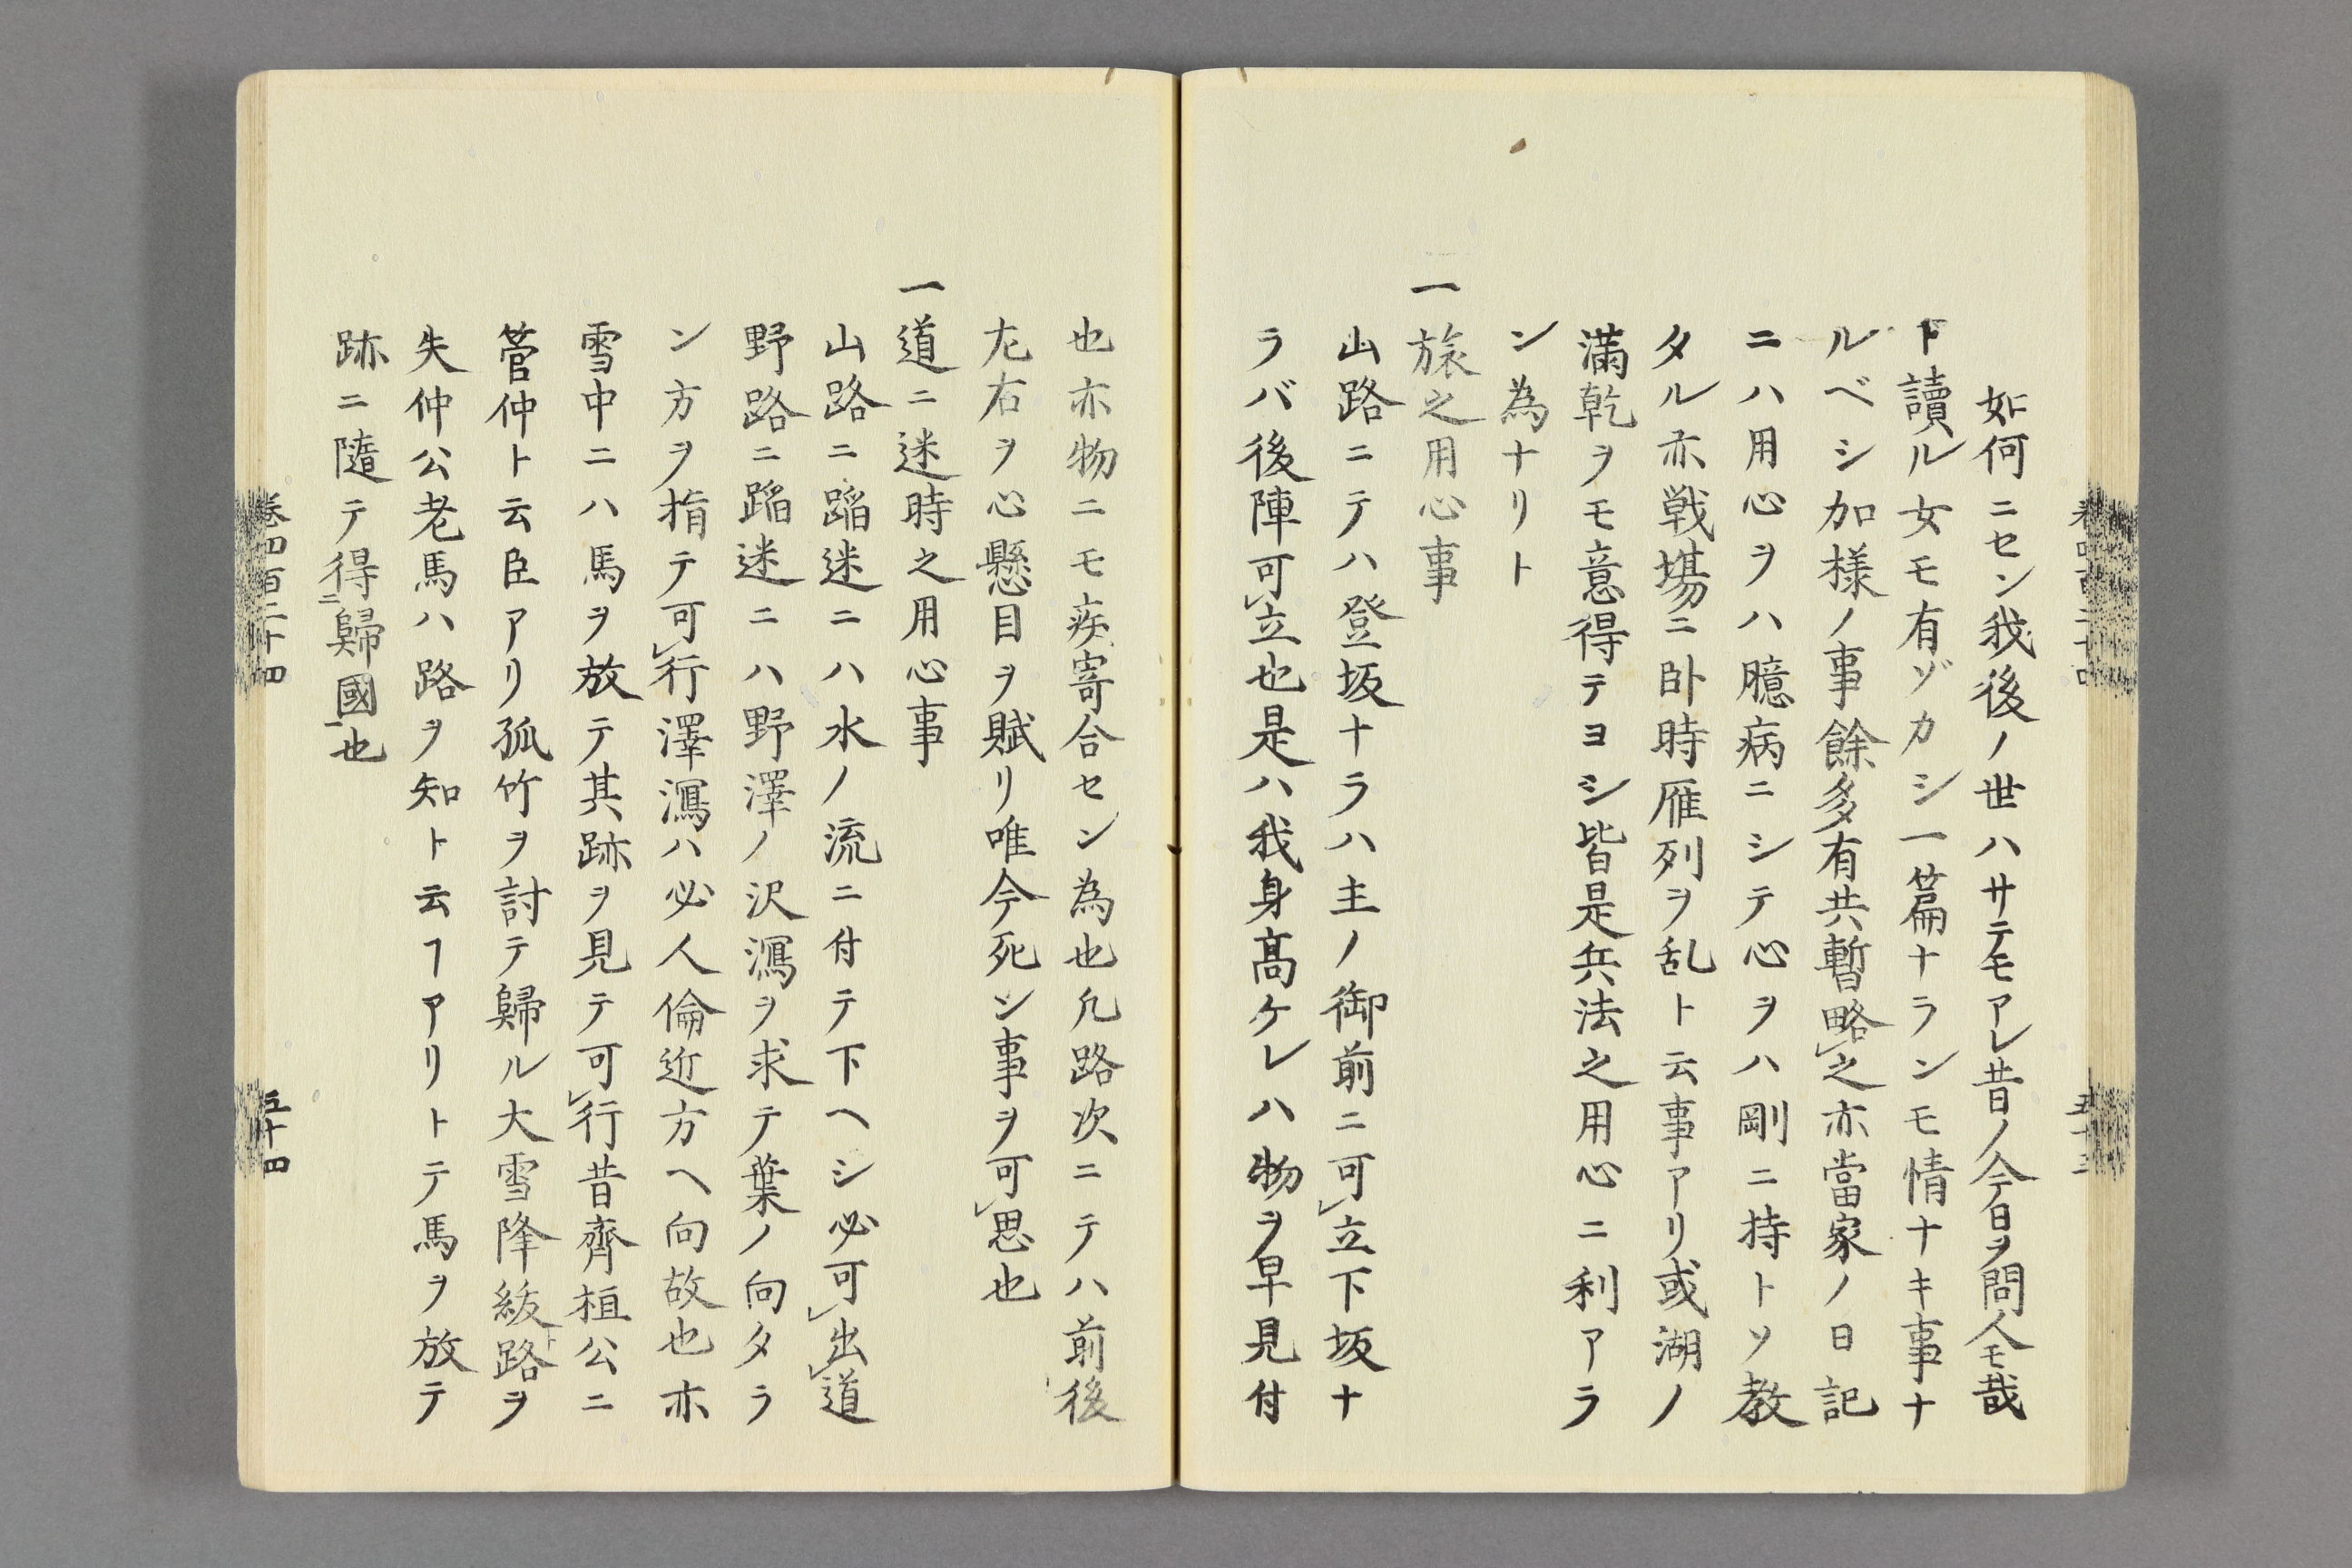 如何ニセン我後ノ世ハサテモアレ昔ノ今日ヲ問人モ哉
ト讀ル女モ有ゾカシ一篇ナランモ情ナキ事ナ
ルベシ加様ノ事餘多有共暫略レ之亦當家ノ日記
ニハ用心ヲハ臆病ニシテ心ヲハ剛ニ持トソ教
タル亦戦場ニ卧時雁列ヲ乱ト云事アリ或湖ノ
満乾ヲモ意得テヨシ皆是兵法之用心ニ利アラ
ン為ナリト
一旅之用心事
山路ニテハ登坂ナラハ主ノ御前ニ可レ立下坂ナ
ラバ後陣可レ立也是ハ我身高ケレハ物ヲ早見付
也亦物ニモ疾寄合セン為也凡路次ニテハ前後
左右ヲ心懸目ヲ賦リ唯今死シ事ヲ可レ思也
一道ニ迷時之用心事
山路ニ蹈迷ニハ水ノ流ニ付テ下ヘシ必可レ出レ道
野路ニ蹈迷ニハ野澤ノ沢瀉ヲ求テ葉ノ向タラ
ン方ヲ指テ可レ行澤瀉ハ必人倫近方ヘ向故也亦
雪中ニハ馬ヲ放テ其跡ヲ見テ可レ行昔齊桓公ニ
管仲ト云臣アリ孤竹ヲ討テ歸ル大雪降紛路ヲ
失仲公老馬ハ路ヲ知ト云ヿアリトテ馬ヲ放テ
跡ニ隨テ得二歸國一也
卷四百二十四
五十四